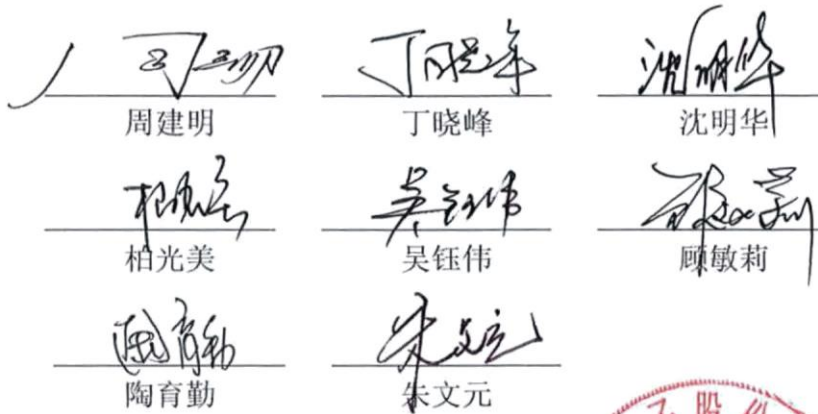 周建明 丁晓峰 沈明华
柏光美 吴钰伟 顾敏莉
陶育勤 朱文元
股